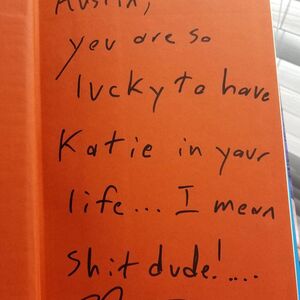 Austin,
you are so
lucky to have
Katie in your
life... I mean
shit dude!....